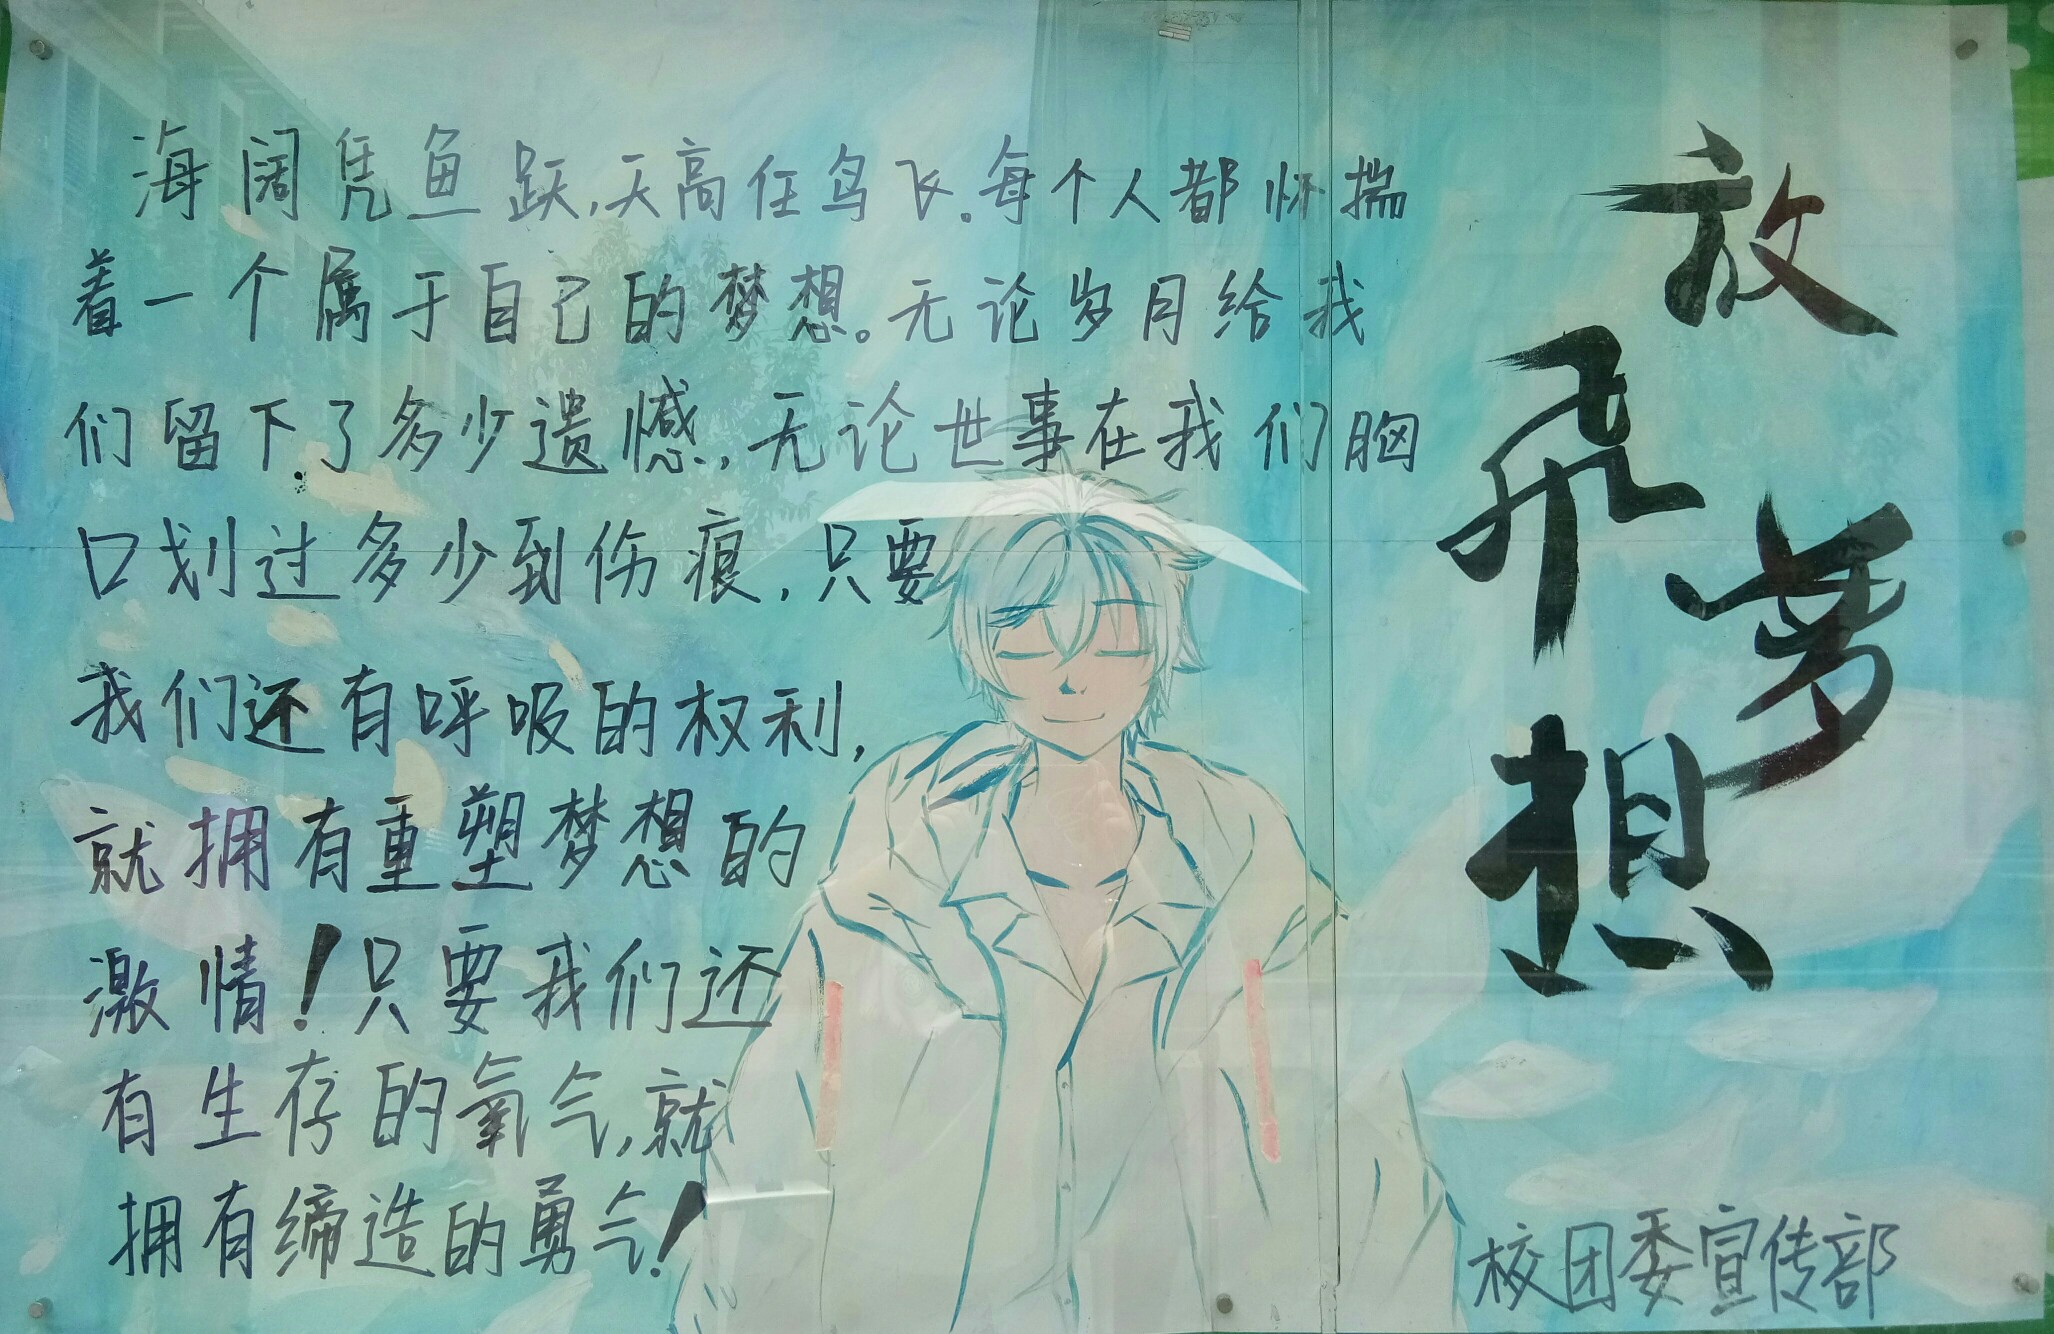 放飞梦想
海阔凭鱼跃,天高任鸟飞.每个人都怀揣
着一个属于自己的梦想。无论岁月给我
们留下了多少遗憾,无论世事在我们胸
口划过多少到伤痕,只要
我们还有呼吸的权利,
就拥有重塑梦想的
激情!只要我们还
有生存的氧气,就
拥有缔造的勇气!
校团委宣传部